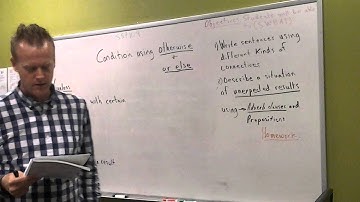 Objectives: Students will be able
to (SWBAT)
Condition using otherwise
+
or else
unless
with certain
result
1) Write sentences using
different kinds of
connectives
2) Describe a situation
of unexpected results
using → Adverb clauses and
Prepositions
Homework